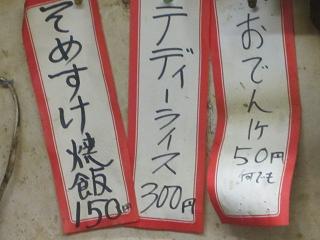 おでん1ケ
50円
何でも
テディーライス
300円
そめすけ焼飯
150円